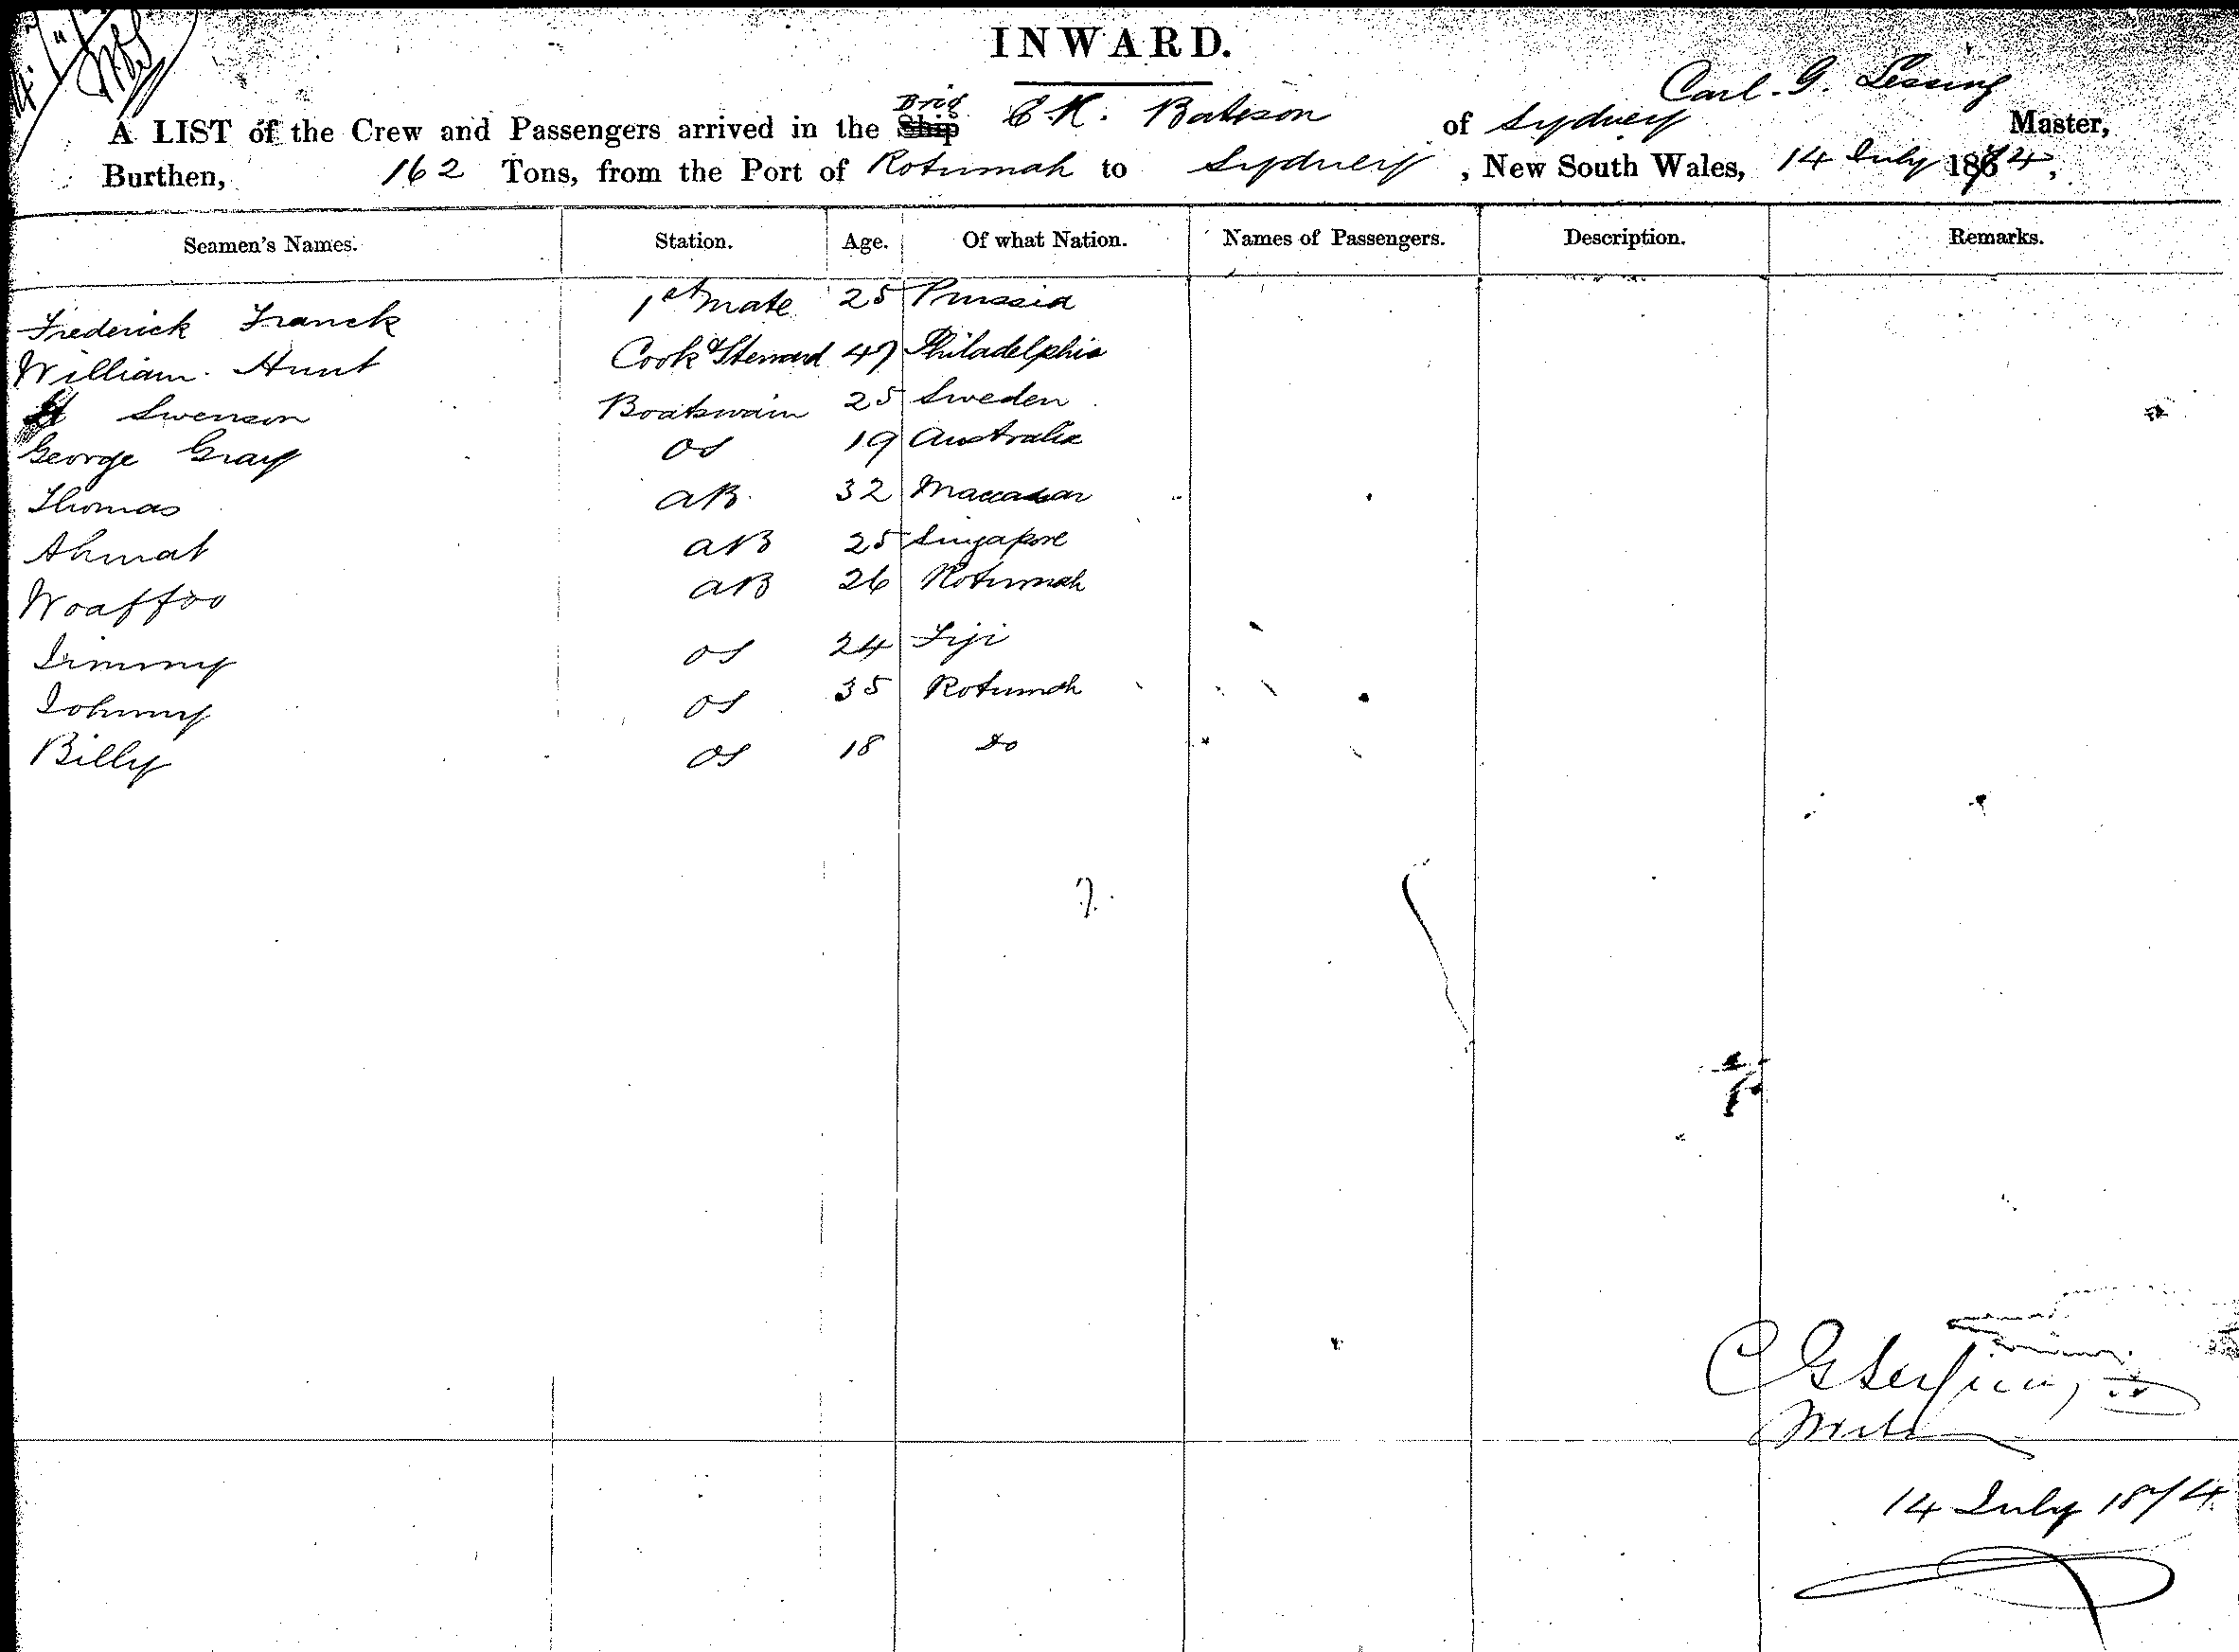 INWARD.
Carl. G. Lessing
Brig
A LIST of the Crew and Passengers arrived in the Ship E. K. Bateson of Sydney Master,
Burthen, 162 Tons, from the Port of Rotumah to Sydney, New South Wales, 14 July 1874,
Seamen's Names. Station. Age. Of what Nation. Names of Passengers. Description. Remarks.
Frederick Franck 1st Mate 25 Prussia
William Hunt Cook & Steward 47 Philadelphia
Swenson Boatswain 25 Sweden
George Gray OS 19 Australia
Thomas AB. 32 Maccassar
Ahmat AB 25 Singapore
Woaffoo AB 26 Rotumah
Jimmy OS 24 Fiji
Johnny OS 35 Rotumah
Billy OS 18 Do
C G Lessing
14 July 1874